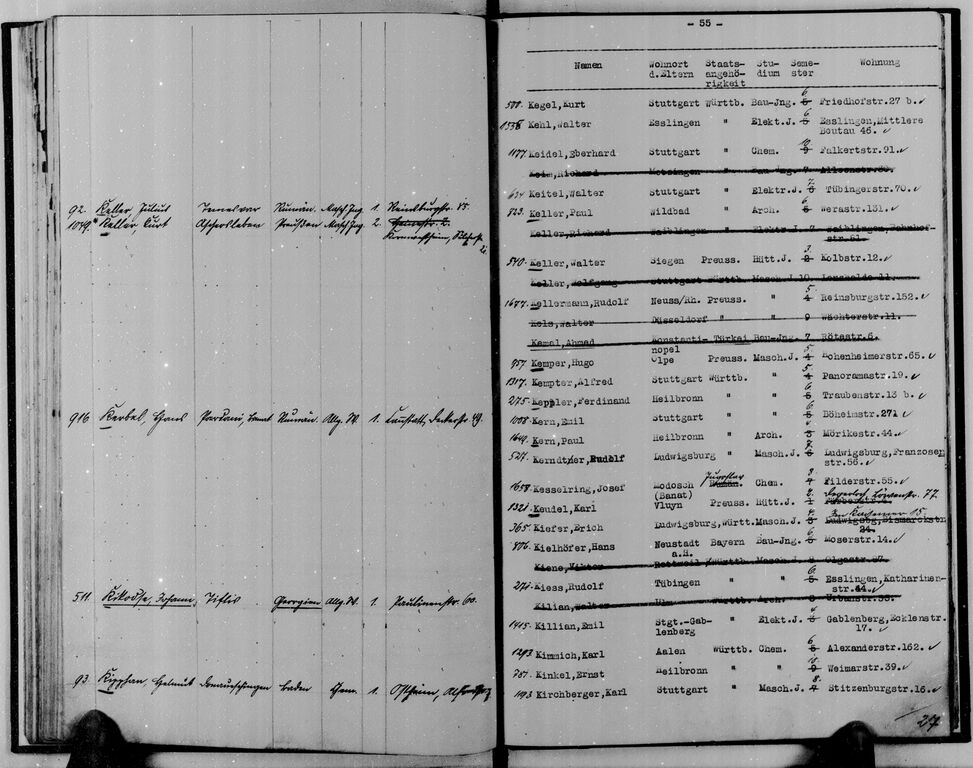 92. Keller, Julius Temesvar Rumän. Masch Ing 1. Reinsburgstr.
1049. Keller, Kurt Aschersleben Preußen Masch Ing 2.
Kornwestheim,
916 Kerbel, Hans Rumän. Allg. W. 1. Cannstatt, 49.
511. Kikodse, Johann, Tiflis Georgien Allg. W. 1. Paulinenstr. 60.
93. Kipphan, Helmut Donaueschingen Baden Chem. 1. Ostheim,
- 55 -
Namen Wohnort Staats- Stu- Seme- Wohnung
d.Eltern angehö- dium ster
rigkeit
6
500. Kegel, Kurt Stuttgart Württb. Bau-Jng. 5 Friedhofstr.27 b.
6
1538 Kehl, Walter Esslingen " Elekt.J. 5 Esslingen,Mittlere
Beutau 46.
1177 Keidel, Eberhard Stuttgart " Chem. 9 Falkertstr.91.
Keim, Richard Metzingen " Bau-Jng. 7
7
634 Keitel, Walter Stuttgart " Elektr.J. 6 Tübingerstr.70.
6
523. Keller, Paul Wildbad " Arch. 5 Werastr.131.
Keller, Richard Waiblingen " Elektr.J. 7 Waiblingen, Bahnhof-
str.61.
3.
540. Keller, Walter Siegen Preuss. Hütt.J. 2 Kolbstr.12.
Keller, Wolfgang Stuttgart Württb. Masch.J. 10 11.
5.
1677. Kellermann, Rudolf Neuss/Rh. Preuss. " 4 Reinsburgstr.152.
Kels, Walter Düsseldorf " " 9 Wächterstr.11.
Kemal, Ahmad Konstanti- Türkei Bau-Jng. 7 Rötestr.6.
nopel
5
957. Kemper, Hugo Olpe Preuss. Masch.J. 4 Hohenheimerstr.65.
5
1317. Kempter, Alfred Stuttgart Württb. " 4 Panoramastr.19.
6
275. Keppler, Ferdinand Heilbronn " " 5 Traubenstr.13 b.
6
1008. Kern, Emil Stuttgart " " 5 Böheimstr.27
1649. Kern, Paul Heilbronn " Arch. 3 Mörikestr.44.
527. Kerndtner, Rudolf Ludwigsburg " Masch.J. 5 Ludwigsburg, Franzosen
str.56.
1658. Kesselring, Josef Modosch Jugoslav Chem. 4 Filderstr.55.
(Banat)
2. Degerloch Löwenstr. 77.
1321. Keudel, Karl Vluyn Preuss. Hütt.J. 1
4. 15.
365. Kiefer, Erich Ludwigsburg, Württ. Masch.J. 3 Ludwigsbg, Bismarckstr
24.
6
806. Kielhöfer, Hans Neustadt Bayern Bau-Jng. 5 Moserstr.14.
a.H.
Kiene, Viktor Rottweil Württb. Masch.J. 8 Olgastr.87
6.
271. Kiess, Rudolf Tübingen " " 5 Esslingen, Katharinen-
str.44.
Kilian, Walter Ulm Württb. Arch. 8 Urbanstr.58.
1415. Killian, Emil Stgt.-Gab- " Elekt.J. 5 Gablenberg, Ecklenstr.
lenberg 17.
6
1293 Kimmich, Karl Aalen Württb. Chem. 5 Alexanderstr.162.
Kinkel, Ernst Heilbronn " " 9 Weimarstr.39.
8.
1193 Kirchberger, Karl Stuttgart " Masch.J. 4 Stitzenburgstr.16.
27